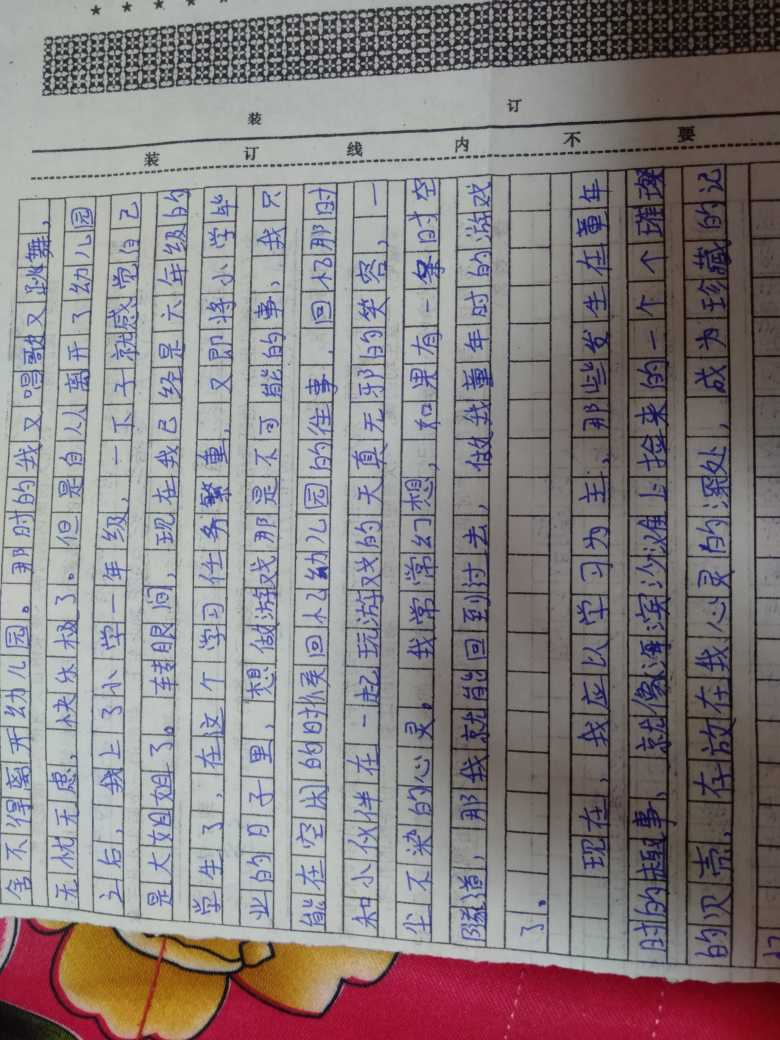 * * * * *
装 订
装 订 线 内 不 要
舍不得离开幼儿园。那时的我又唱歌又跳舞，
无忧无虑，快乐极了。但是自从离开了幼儿园
之后，我上了小学一年级，一下子就感觉自己
是大姐姐了。转眼间，现在我已经是六年级的
学生了，在这个学习任务繁重，又即将小学毕
业的日子里，想做游戏那是不可能的事，我只
能在空闲的时候回忆幼儿园的往事，回忆那时
和小伙伴在一起玩游戏的天真无邪的笑容，一
尘不染的心灵。我常常幻想，如果有一条时空
隧道，那我就能回到过去，做我童年时的游戏
了。
现在，我应以学习为主，那些发生在童年
时的趣事，就像海滨沙滩上捡来的一个个璀璨
的贝壳，存放在我心灵的深处，成为珍藏的记
忆